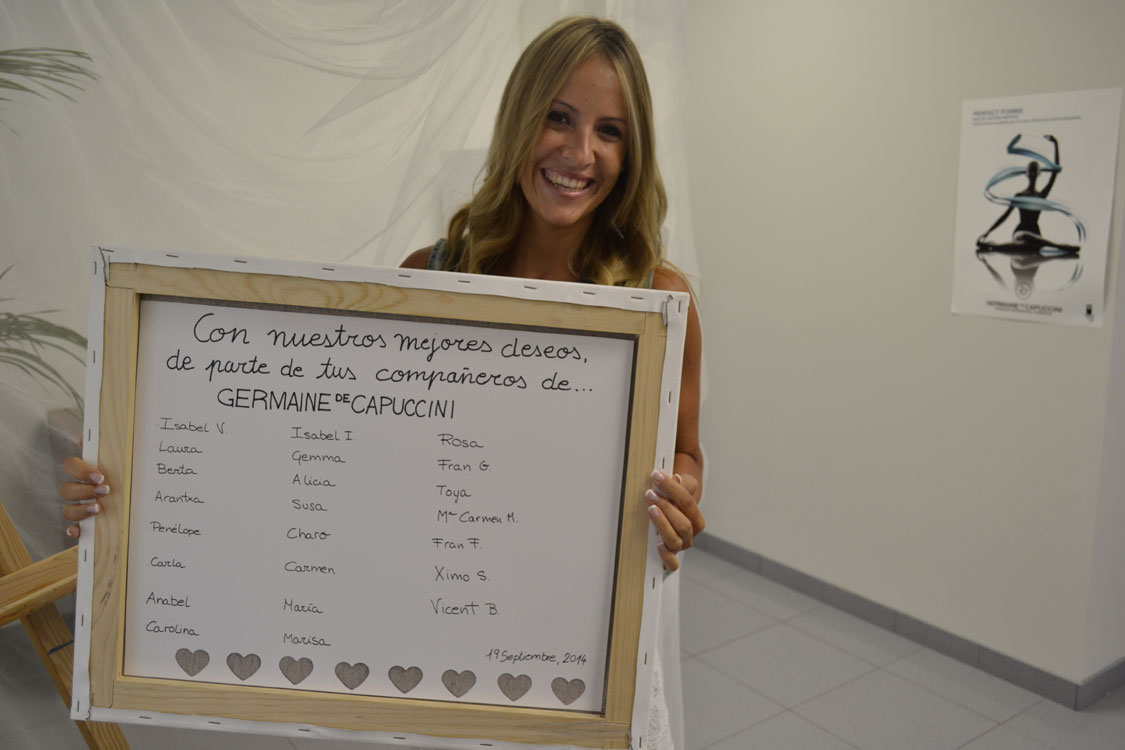 Con nuestros mejores deseos,
de parte de tus compañeros de...
GERMAINE DE CAPUCCINI
Isabel V.
Laura
Berta
Arantxa
Penélope
Carla
Anabel
Carolina
Isabel I.
Gemma
Alicia
Susa
Charo
Carmen
María
Marisa
Rosa
Fran G.
Toya
Mª Carmen M.
Fran F.
Ximo S.
Vicent B.
19 Septiembre, 2014
PERFECT FORMS
GERMAINE DE CAPUCCINI